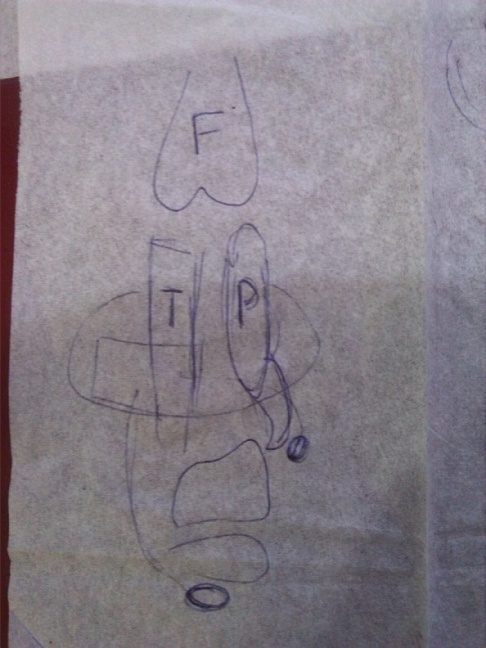 F
T P